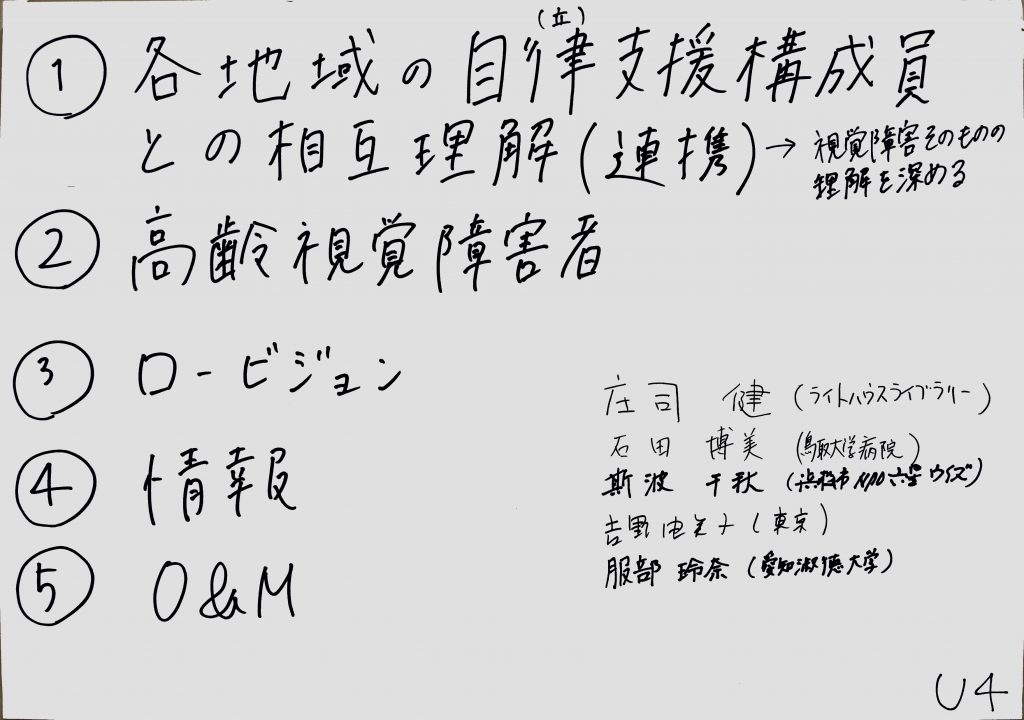 ① 各地域の自律(立)支援構成員
との相互理解(連携)→ 視覚障害そのものの
理解を深める
② 高齢視覚障害者
③ ロービジョン
④ 情報
⑤ O&M
庄司 健(ライトハウスライブラリー)
石田 博美(鳥取大学病院)
斯波 千秋(浜松市NPO六星ウイズ)
吉野由美子(東京)
服部 玲奈(愛知淑徳大学)
U4